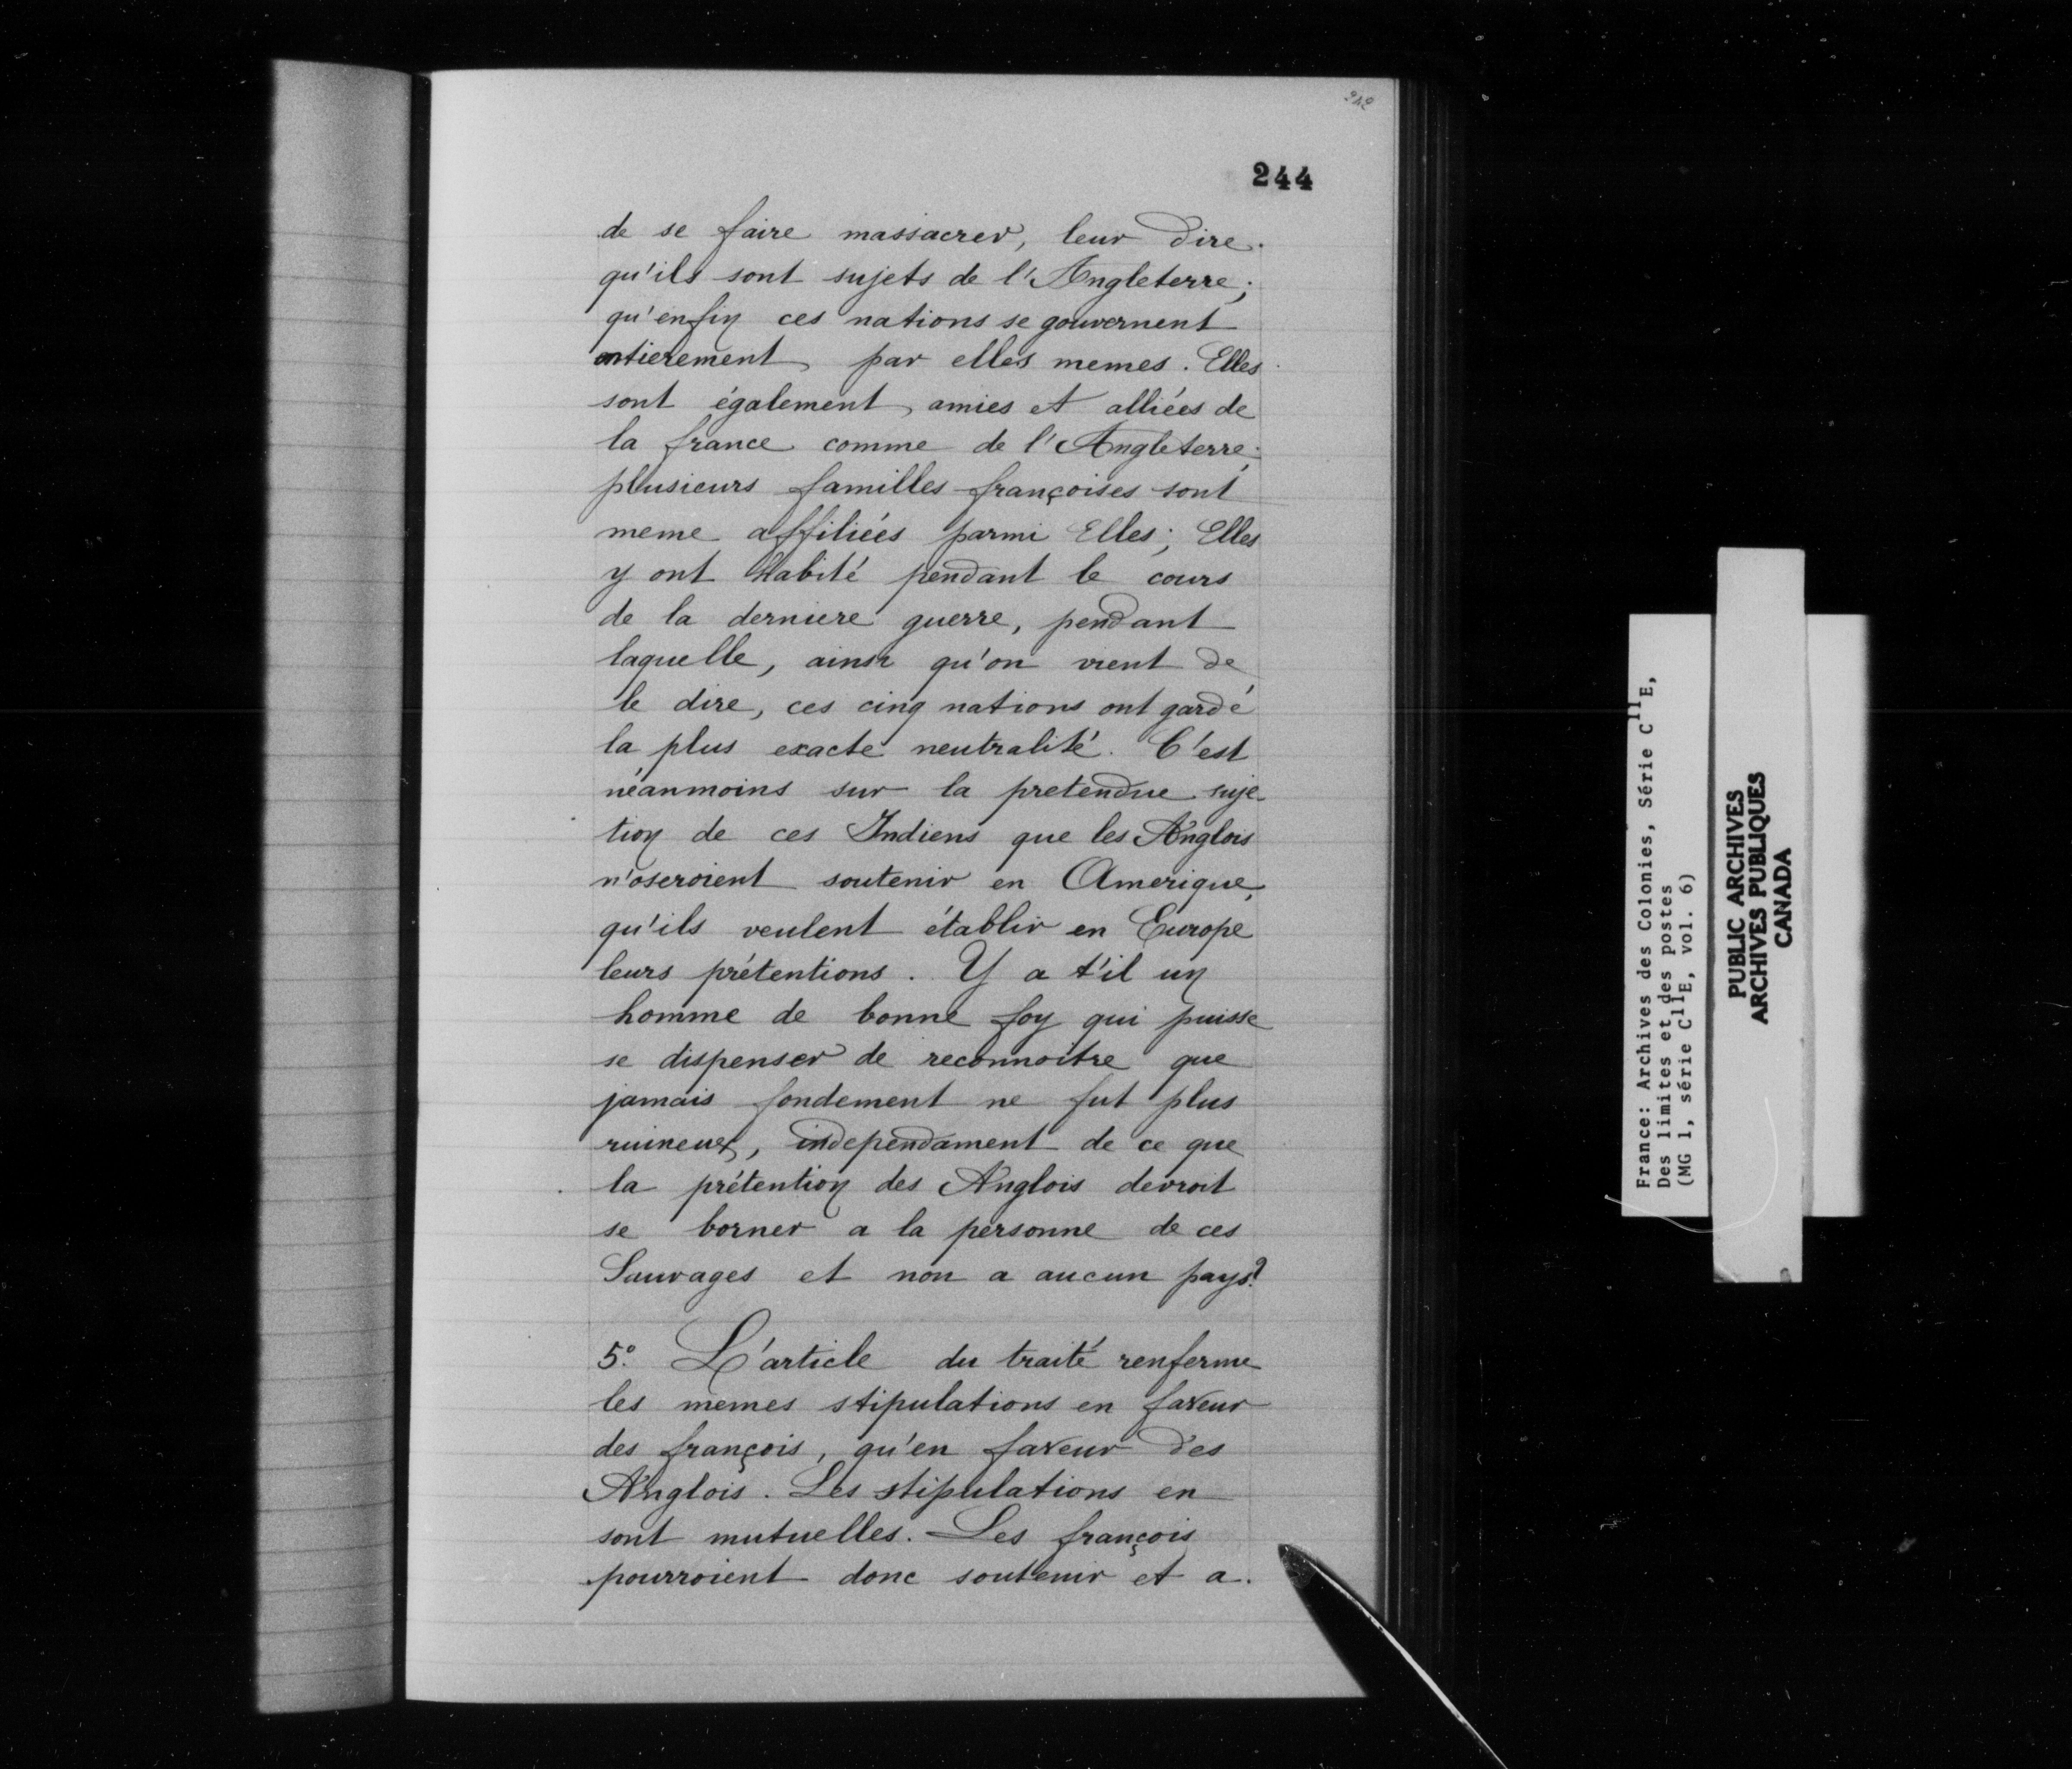 242
244
de se faire massacrer, leur dire
qu'ils sont sujets de l'Angleterre;
qu'enfin ces nations se gouvernent
entierement par elles memes. Elles
sont également amies et alliées de
la france comme de l'Angleterre;
plusieurs familles françoises sont
meme affiliées parmi Elles; Elles
y ont habité pendant le cours
de la derniere guerre, pendant
laquelle, ainsi qu'on vient de
le dire, ces cinq nations ont gardé
la plus exacte neutralité. C'est
néanmoins sur la pretendue suje-
tion de ces Indiens que les Anglois
n'oseroient soutenir en Amerique,
qu'ils veulent établir en Europe
leurs prétentions. Y a t'il un
homme de bonne foy qui puisse
se dispenser de reconnoitre que
jamais fondement ne fut plus
ruineux, independament de ce que
la prétention des Anglois devroit
se borner a la personne de ces
Sauvages et non a aucun pays?
5º. L'article du traité renferme
les memes stipulations en faveur
des françois, qu'en faveur des
Anglois. Les stipulations en
sont mutuelles. Les françois
pourroient donc soutenir et a.
France: Archives des Colonies, Série C11E,
Des limites et des postes
(MG 1, série C11E, vol. 6)
PUBLIC ARCHIVES
ARCHIVES PUBLIQUES
CANADA